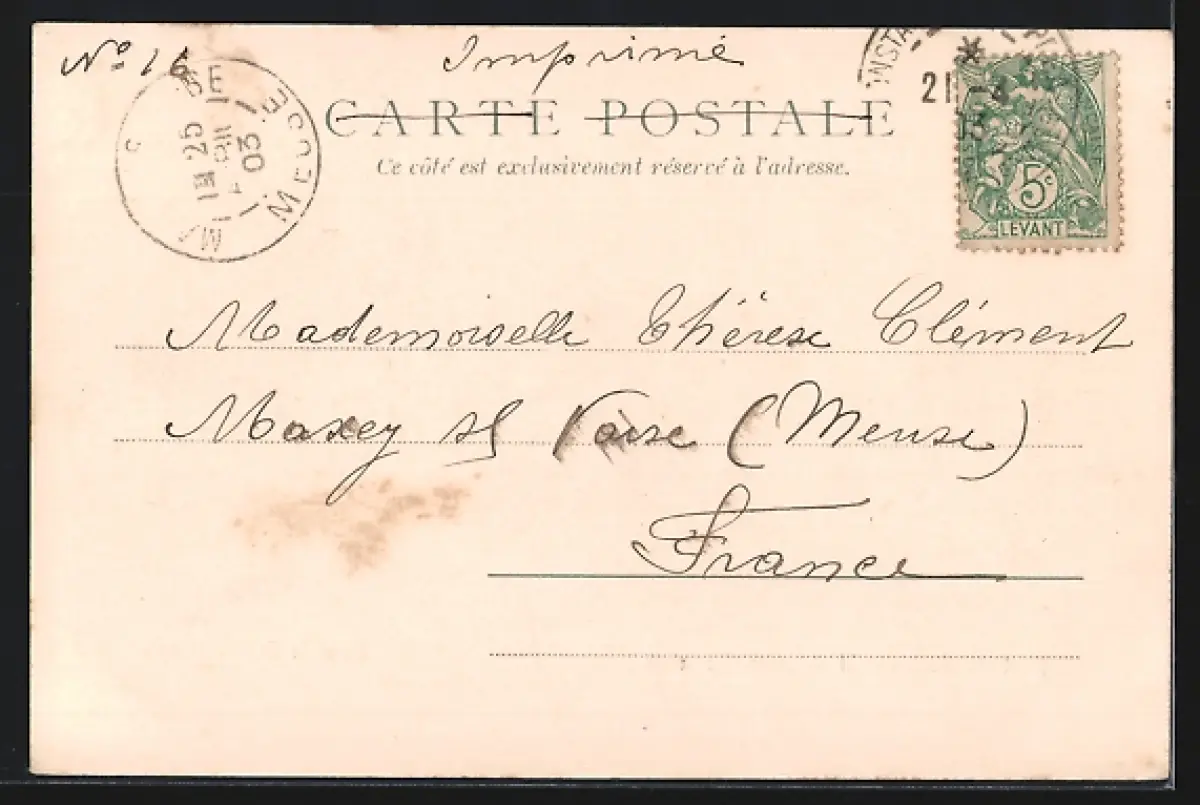 No 16
Imprimé
CARTE POSTALE
Ce côté est exclusivement réservé à l'adresse.
MEUSE
25
03
21 -4
5c
LEVANT
Mademoiselle Thérèse Clément
Maxey s/ Vaise (Meuse)
France